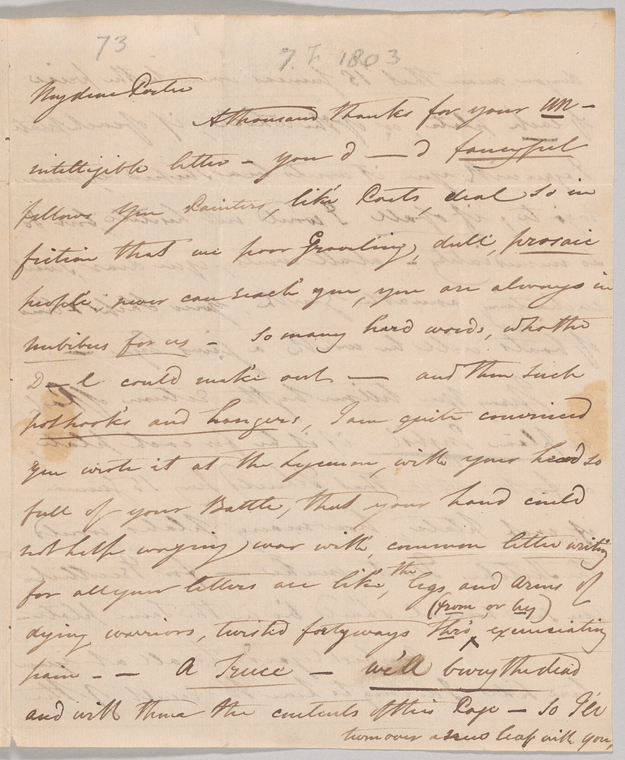 73
7. F. 1803
My dear Porter
A thousand thanks for your un-
intelligible letter - you d—d fancyful
fellows you Painters, like Poets, deal so in
fiction that we poor Groveling, dull, prosaic
people never can reach you, you are always in
nubibus for us - So many hard words, who the
D—l could make out — and then such
pothooks and hangers, I am quite convinced
you wrote it at the Lyceum, with your head so
full of your Battle, that your hand could
not help waging war with, common letter writing
for all your letters are like, the legs and arms of
dying warriors, twisted forty ways thro' (from, or by) excruciating
pain - - A Truce - we'll bury the dead
and with them the contents of this Page - So I'll
turn over a new leaf with you,